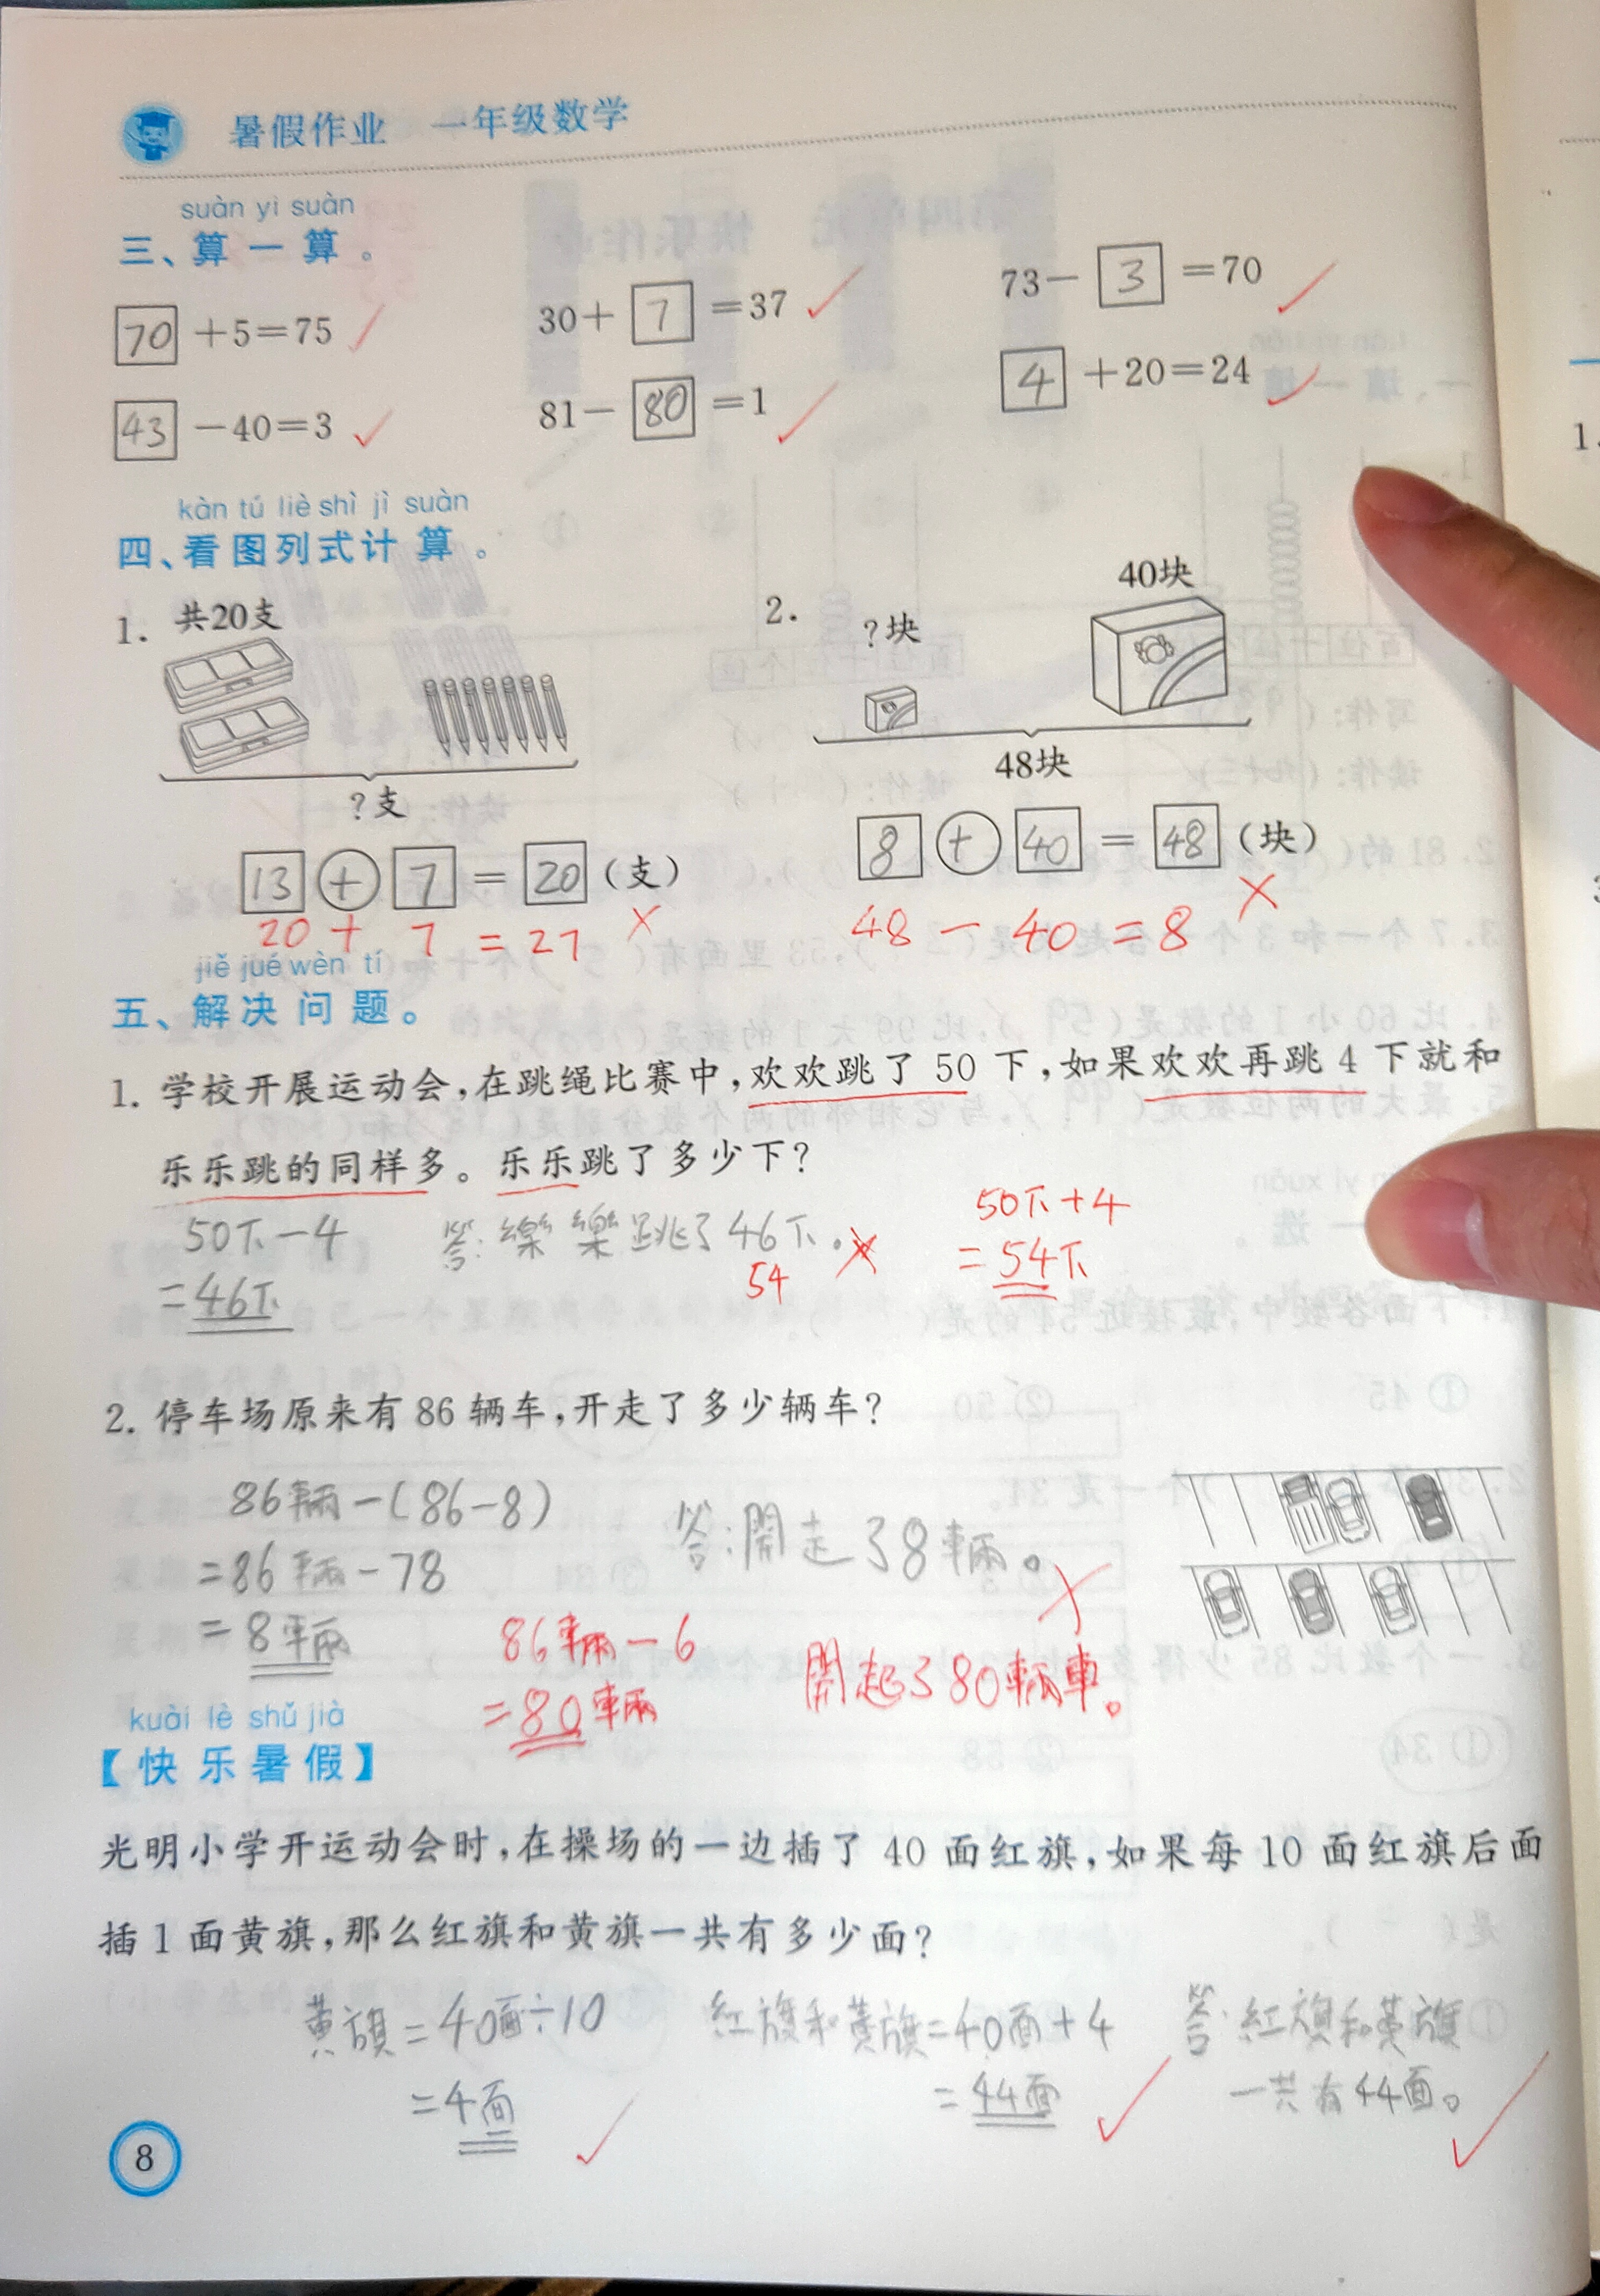 暑假作业 一年级数学
suàn yi suàn
三、算一算。
70 +5=75
30+ 7 =37
73- 3 =70
43 -40=3
81- 80 =1
4 +20=24
kàn tú liè shì jì suàn
四、看图列式计算。
1. 共20支
?支
13 + 7 = 20 (支)
20 + 7 = 27
2. ?块 40块
48块
8 + 40 = 48 (块)
48 - 40 = 8
jiě jué wèn tí
五、解决问题。
1. 学校开展运动会,在跳绳比赛中,欢欢跳了 50 下,如果欢欢再跳 4 下就和
乐乐跳的同样多。乐乐跳了多少下?
50下-4
=46下
答:樂樂跳了46下。
54
50下+4
=54下
2. 停车场原来有 86 辆车,开走了多少辆车?
86輛-(86-8)
=86輛-78
=8輛
答:開走了8輛。
86輛-6
=80輛
開起了80輛車。
kuài lè shǔ jià
【快乐暑假】
光明小学开运动会时,在操场的一边插了 40 面红旗,如果每 10 面红旗后面
插 1 面黄旗,那么红旗和黄旗一共有多少面?
黄旗=40面÷10
=4面
紅旗和黄旗=40面+4
=44面
答:紅旗和黄旗
一共有44面。
8
1.